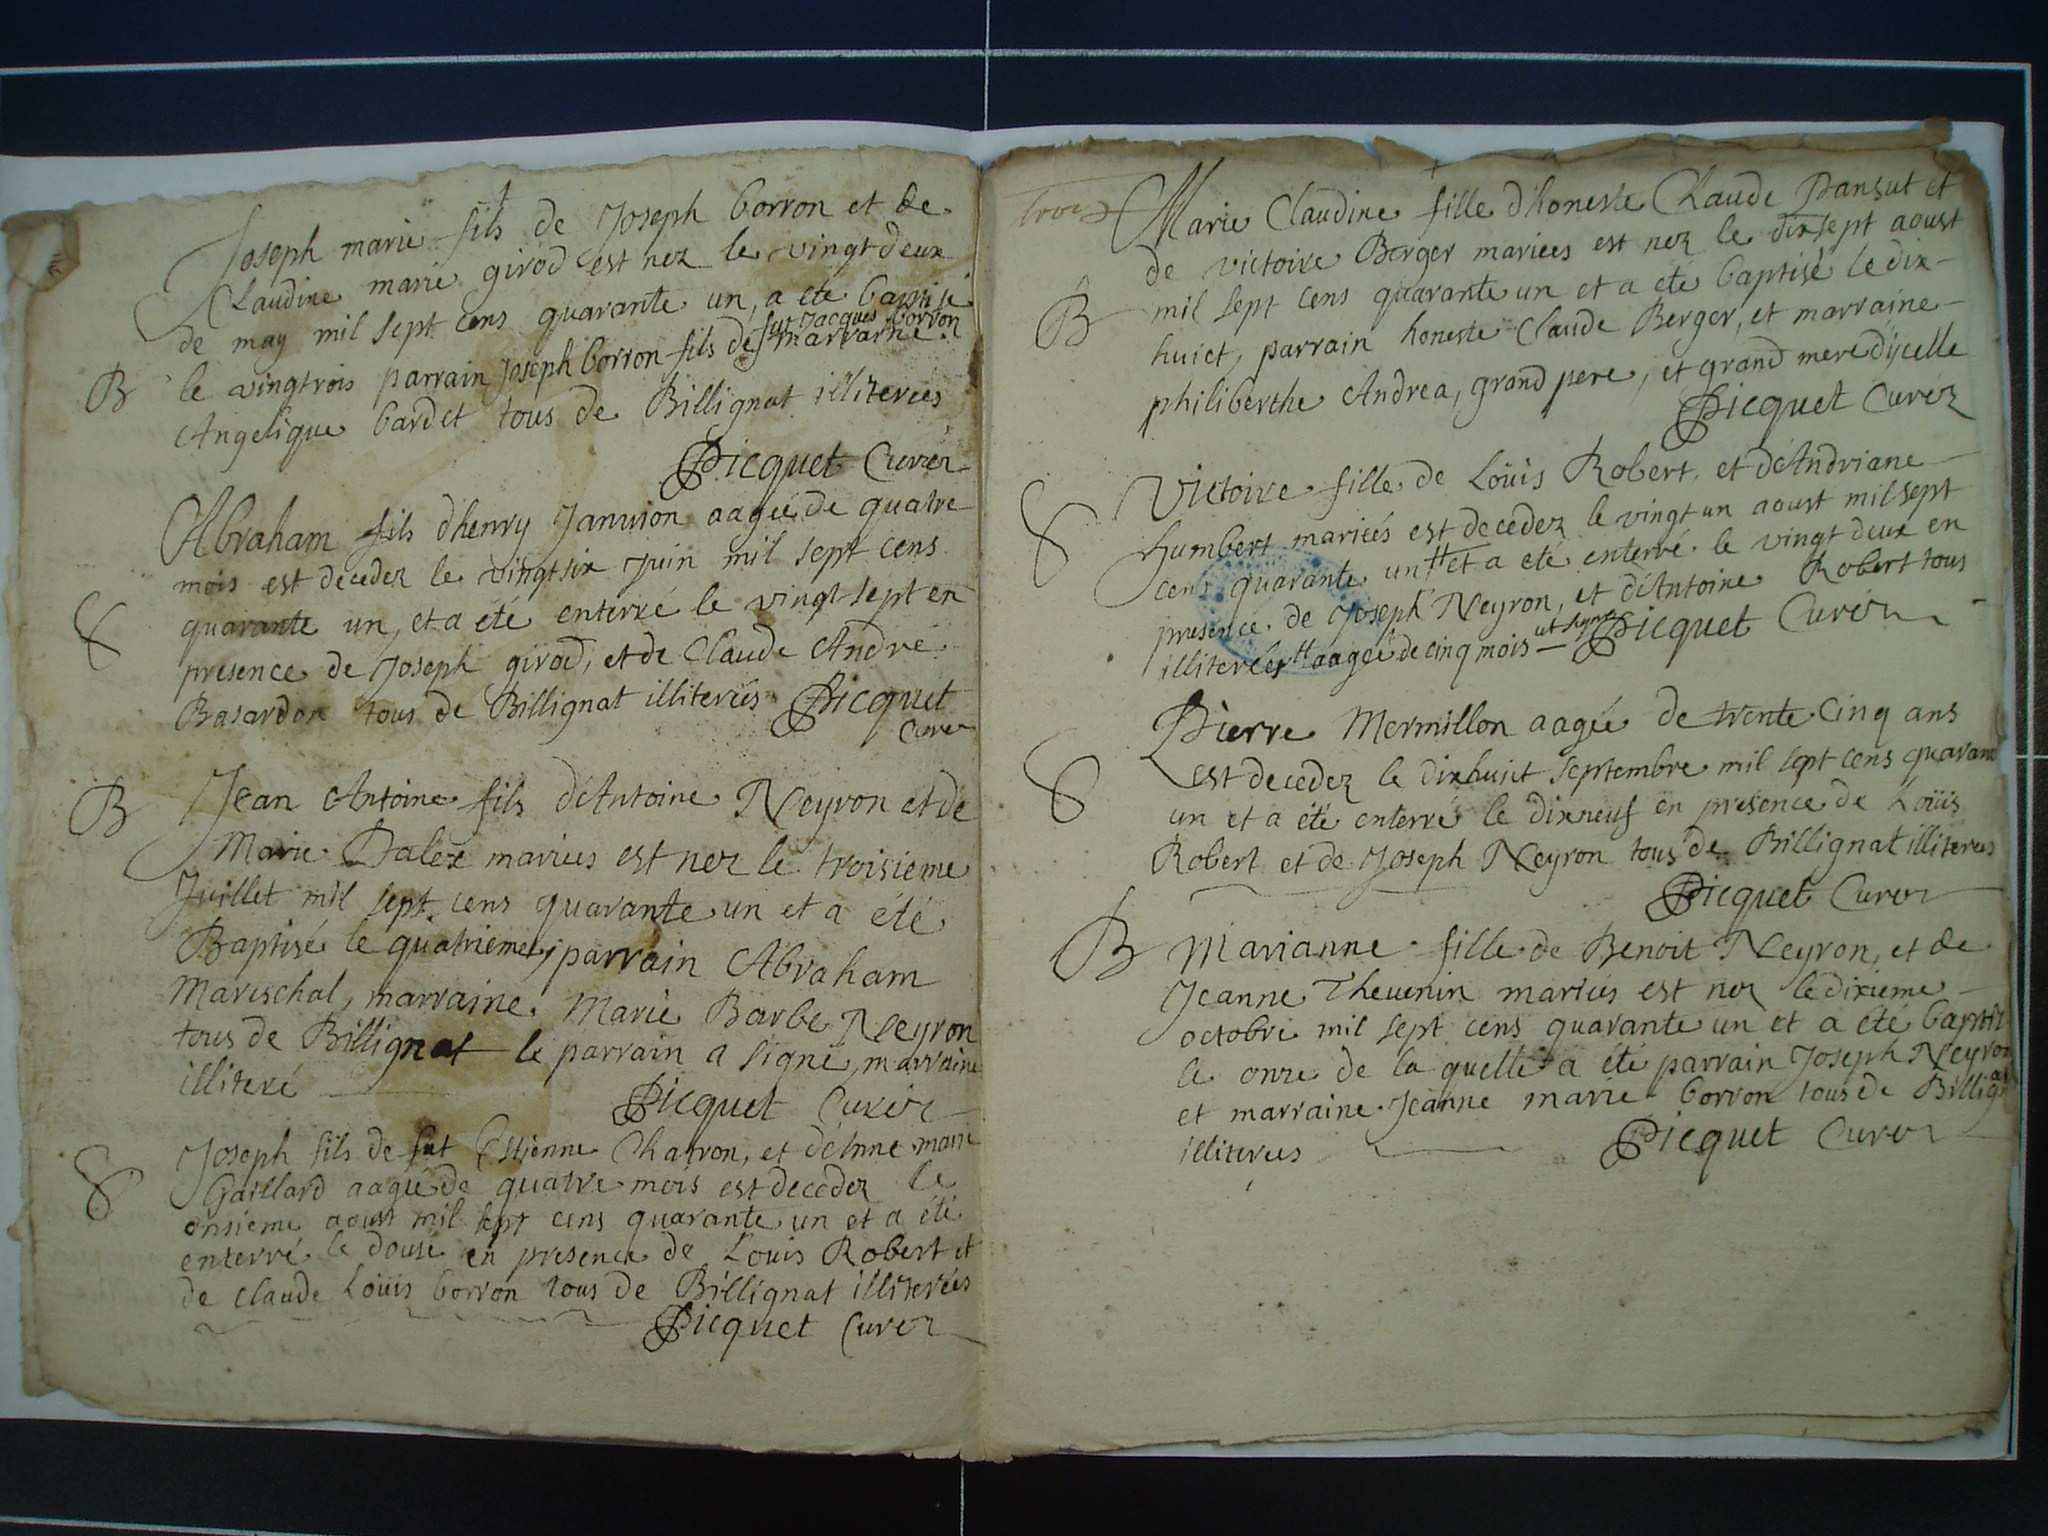 Joseph marie fils de Joseph borron et de
Claudine marie girod est nez le vingt deux
de may mil sept cens quarante un, a été baptisé
le vingtrois parrain Joseph borron fils de fut Jacques borron marraine
B
Angelique bardet tous de Billignat illiterées
Picquet Curéz
Abraham fils d'henry Janvion aagée de quatre
mois est decedez le vingt six Juin mil sept cens
quarante un, et a été enterré le vingt sept en
S
presence de Joseph girod, et de Claude André
Basardon tous de Billignat illiterées Picquet
Curez
B
Jean Antoine fils d'Antoine Neyron et de
Marie Dalex mariees est nez le troisieme
Juillet mil sept cens quarante un et a été
Baptisé le quatrieme, parrain Abraham
Mareschal, marraine Marie Barbe Neyron
tous de Billignat le parrain a signé, marraine
illiteré
Picquet Curéz
Joseph fils de fut Estienne Charron, et d'Anne marie
S
Gaillard aagée de quatre mois est decedez le
onsieme aoust mil sept cens quarante un et a été
enterré le douse en presence de Louis Robert et
de Claude Loüis borron tous de Billignat illiterées
Picquet Curez
trois
Marie Claudine fille d'honeste Claude Pansut et
de victoire Berger mariees est nez le dixsept aoust
B
mil sept cens quarante un et a eté baptisé le dix-
huict, parrain honeste Claude Berger, et marraine
philiberthe Andrea, grand pere, et grand mere dycelle
Picquet Curéz
Victoire fille de Loüis Robert, et d'Andriane
S
humbert mariées est decedez le vingt un aoust mil sept
cens quarante un et a eté enterré le vingt deux en
presence de Joseph Neyron, et d'Antoine Robert tous
illiterées aagée de cinq mois ut supra Picquet Curéz
Pierre Mermillon aagée de trente cinq ans
S
est decedez le dixhuict septembre mil sept cens quarante
un et a été enterré le dixneuf en presence de Loüis
Robert et de Joseph Neyron tous de Billignat illiterees
Picquet Curez
B
Marianne fille de Benoit Neyron, et de
Jeanne Thevenin mariés est nez le dixieme
octobre mil sept cens quarante un et a été baptisé
le onze de la quelle a été parrain Joseph Neyron
et marraine Jeanne marie borron tous de Billignat
illiterees
Picquet Curez